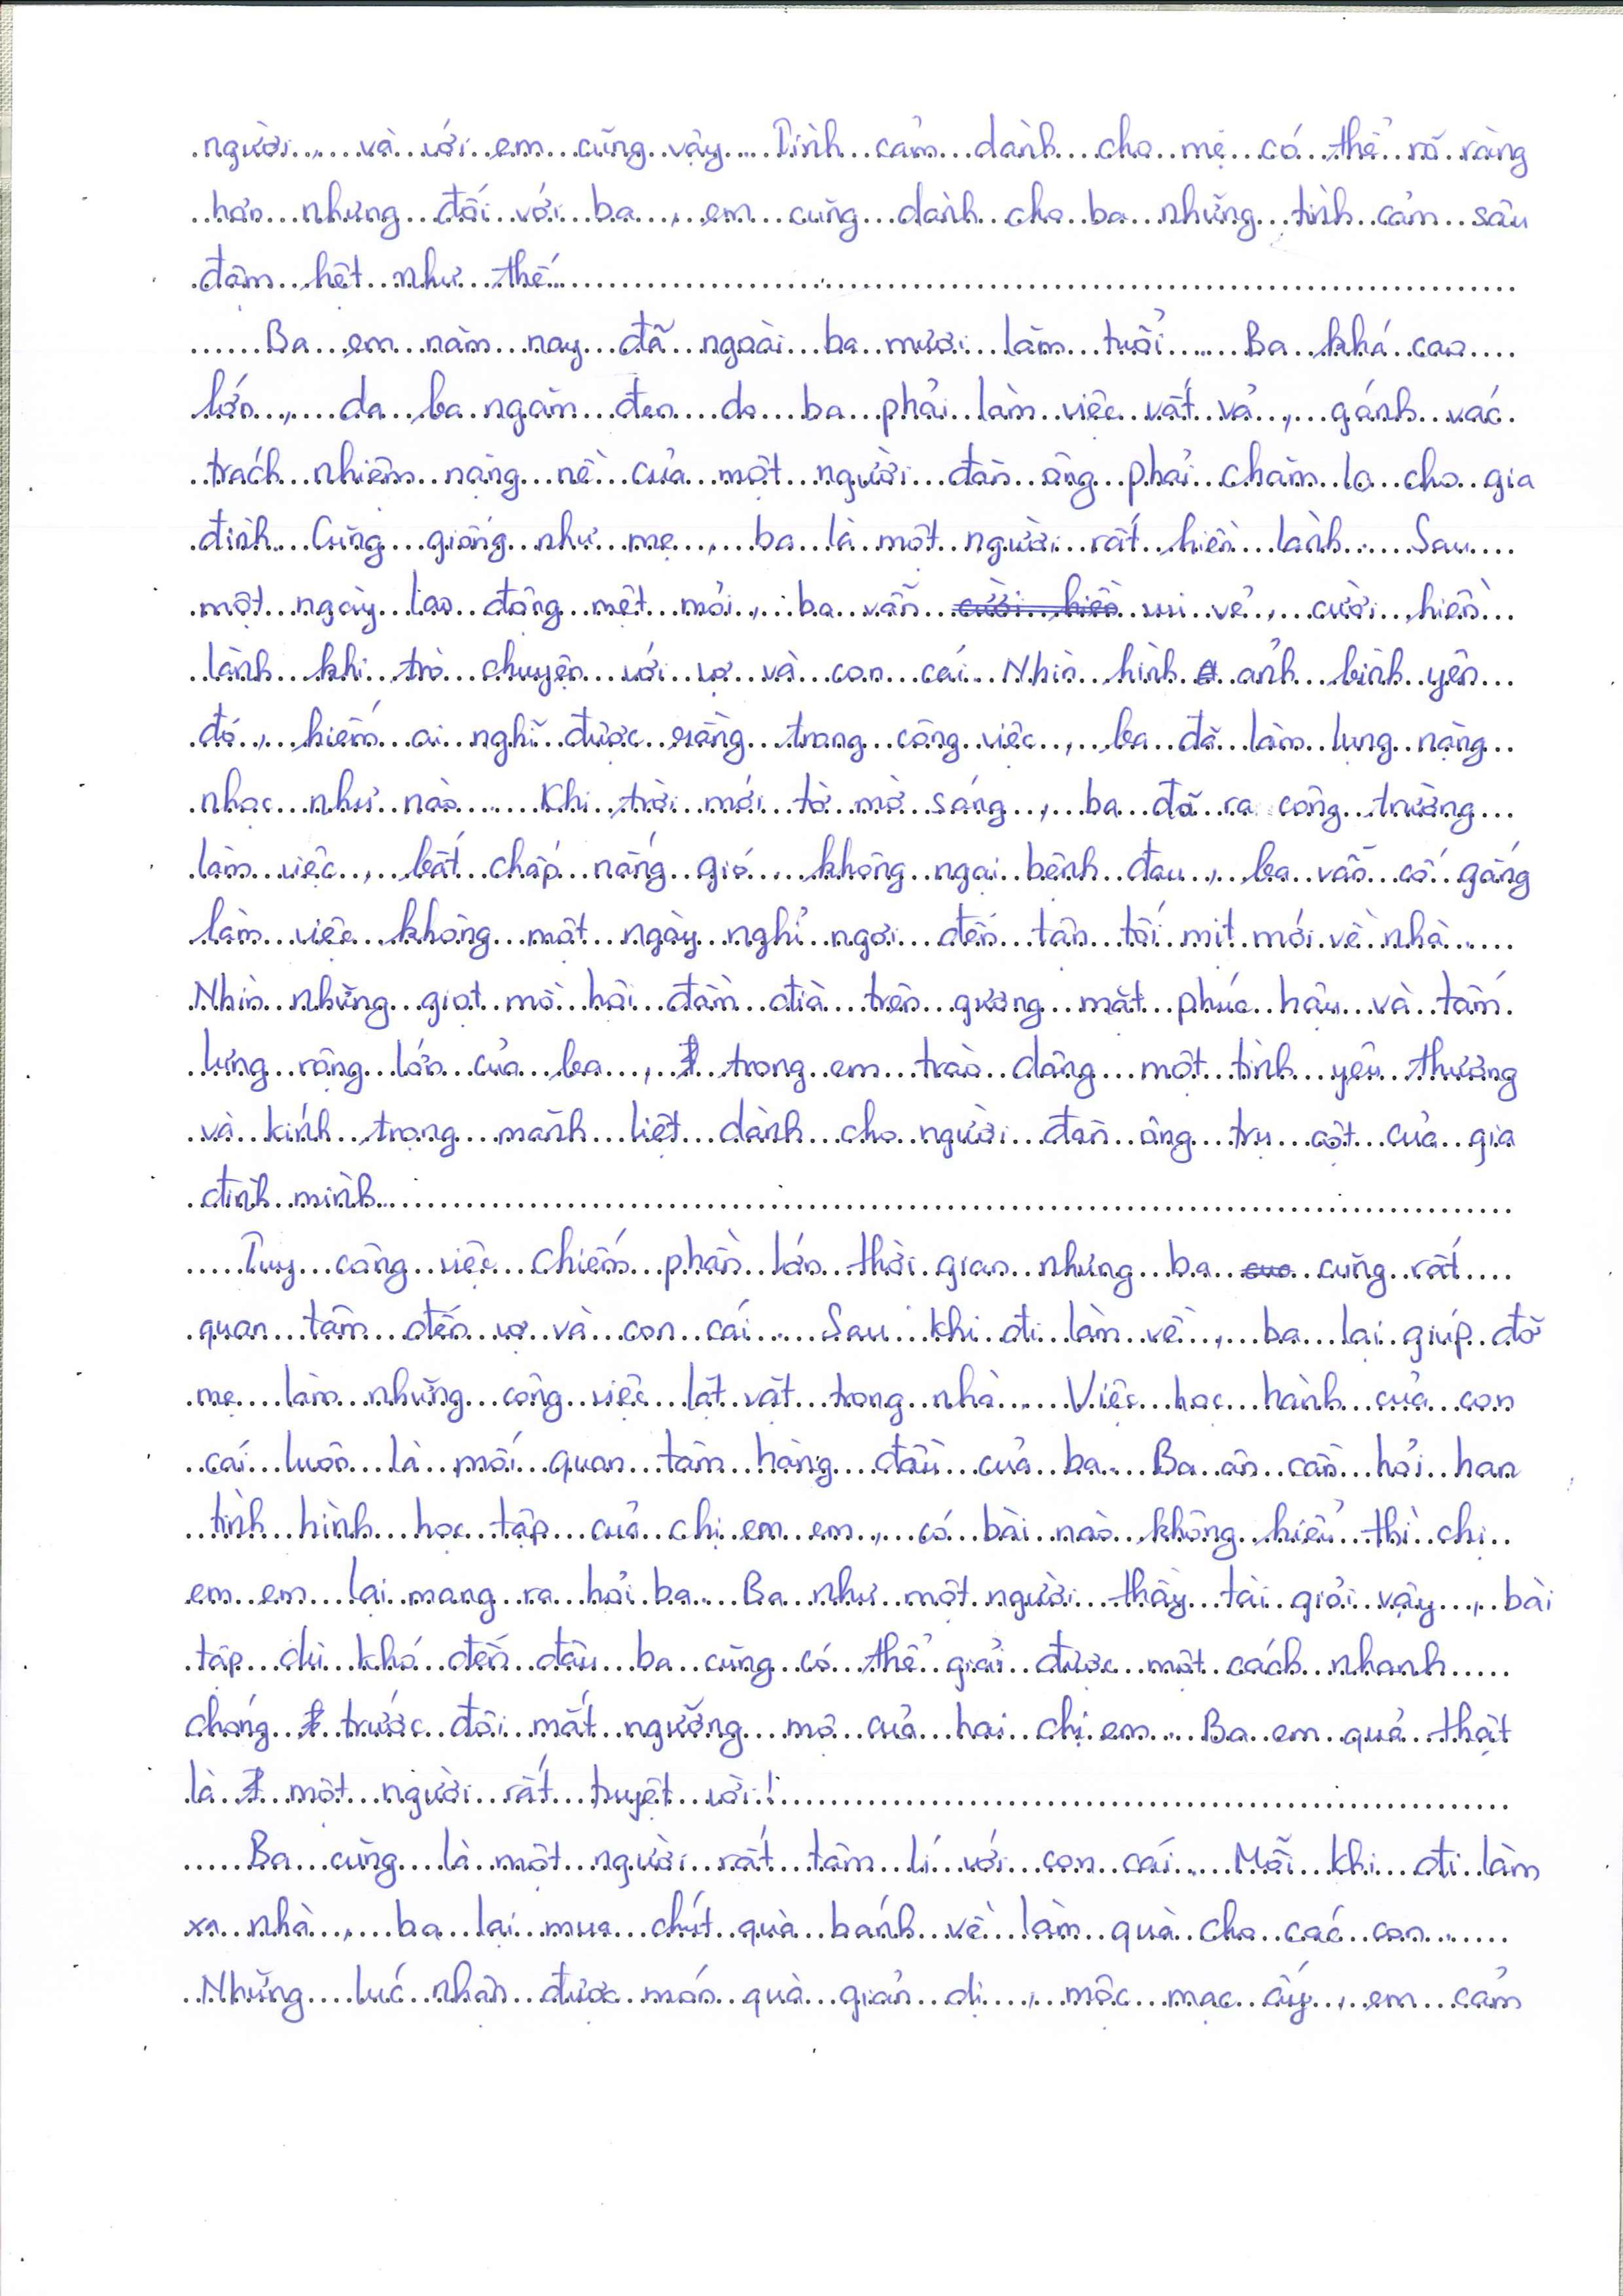 người, và với em cũng vậy. Tình cảm dành cho mẹ có thể rõ ràng
hơn nhưng đối với ba, em cũng dành cho ba những tình cảm sâu
đậm hệt như thế.
Ba em năm nay đã ngoài ba mươi lăm tuổi. Ba khá cao
lớn, da ba ngăm đen do ba phải làm việc vất vả, gánh vác
trách nhiệm nặng nề của một người đàn ông phải chăm lo cho gia
đình. Cũng giống như mẹ, ba là một người rất hiền lành. Sau
một ngày lao động mệt mỏi, ba vẫn cười hiền vui vẻ, cười hiền
lành khi trò chuyện với vợ và con cái. Nhìn hình ảnh bình yên
đó, hiếm ai nghĩ được rằng trong công việc, ba đã làm lụng nặng
nhọc như nào. Khi trời mới tờ mờ sáng, ba đã ra công trường
làm việc, bất chấp nắng gió, không ngại bệnh đau, ba vẫn cố gắng
làm việc không một ngày nghỉ ngơi đến tận tối mịt mới về nhà.
Nhìn những giọt mồ hôi đầm đìa trên gương mặt phúc hậu và tấm
lưng rộng lớn của ba, trong em trào dâng một tình yêu thương
và kính trọng mãnh liệt dành cho người đàn ông trụ cột của gia
đình mình.
Tuy công việc chiếm phần lớn thời gian nhưng ba cũng rất
quan tâm đến vợ và con cái. Sau khi đi làm về, ba lại giúp đỡ
mẹ làm những công việc lặt vặt trong nhà. Việc học hành của con
cái luôn là mối quan tâm hàng đầu của ba. Ba ân cần hỏi han
tình hình học tập của chị em em, có bài nào không hiểu thì chị
em em lại mang ra hỏi ba. Ba như một người thầy tài giỏi vậy, bài
tập dù khó đến đâu ba cũng có thể giải được một cách nhanh
chóng trước đôi mắt ngưỡng mộ của hai chị em. Ba em quả thật
là một người rất tuyệt vời!
Ba cũng là một người rất tâm lí với con cái. Mỗi khi đi làm
xa nhà, ba lại mua chút quà bánh về làm quà cho các con.
Những lúc nhận được món quà giản dị, mộc mạc ấy, em cảm